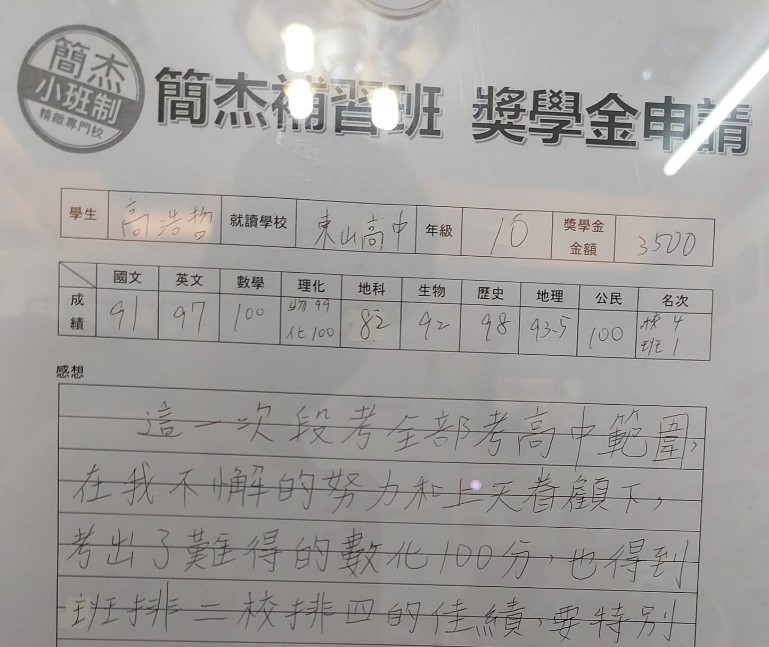 簡杰
小班制
精緻專門校
簡杰補習班 獎學金申請
學生 高浩哲 就讀學校 東山高中 年級 10 獎學金金額 3500
國文 英文 數學 理化 地科 生物 歷史 地理 公民 名次
成績 91 97 100 物99 化100 82 92 98 93.5 100 校4 班1
感想
這一次段考全部考高中範圍,
在我不懈的努力和上天眷顧下,
考出了難得的數化100分,也得到
班排二校排四的佳績,要特別